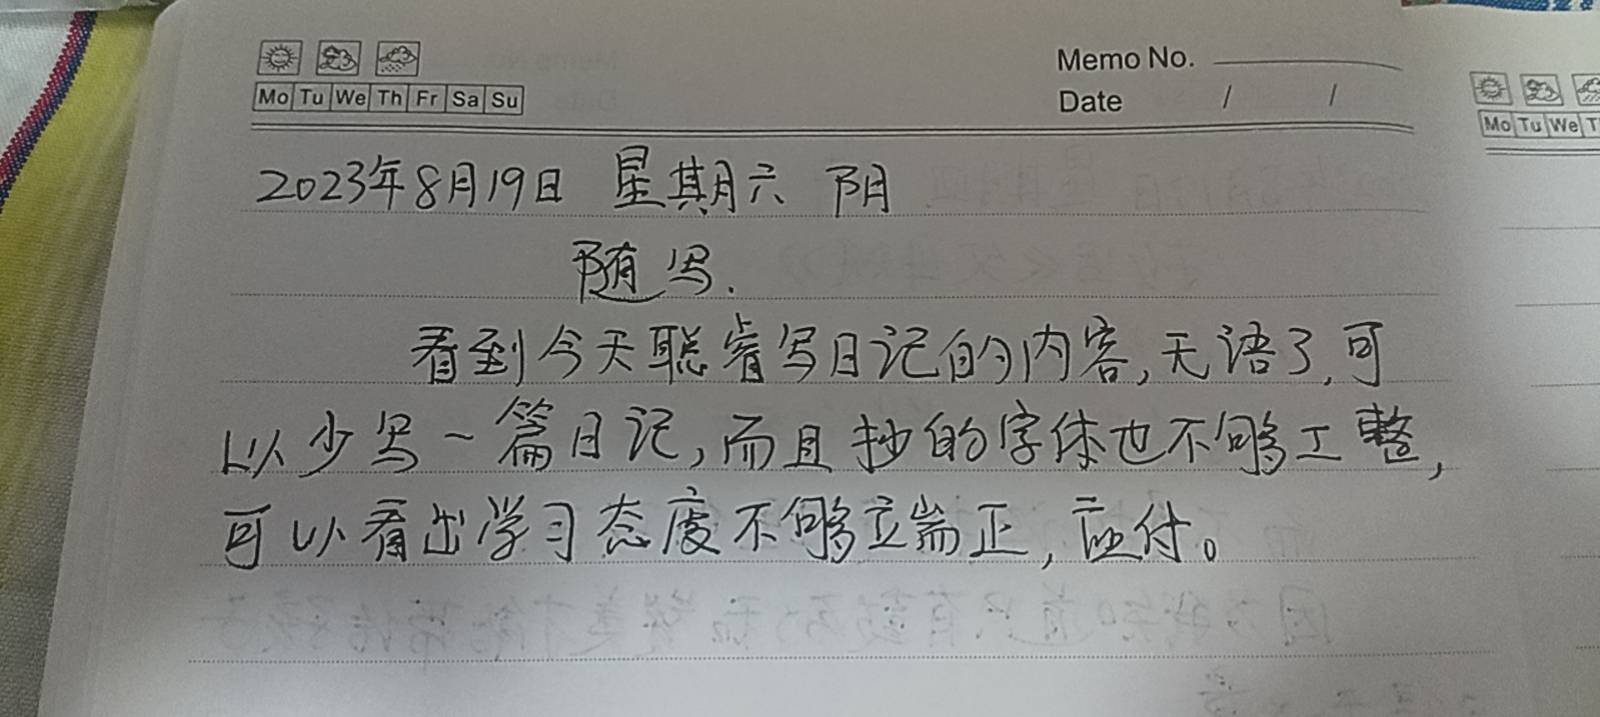 Memo No.
Mo Tu We Th Fr Sa Su
Date / /
Mo Tu We T
2023年8月19日 星期六 阴
随写.
看到今天聪睿写日记的内容,无语了,可
以少写一篇日记,而且抄的字体也不够工整,
可以看出学习态度不够端正,应付。